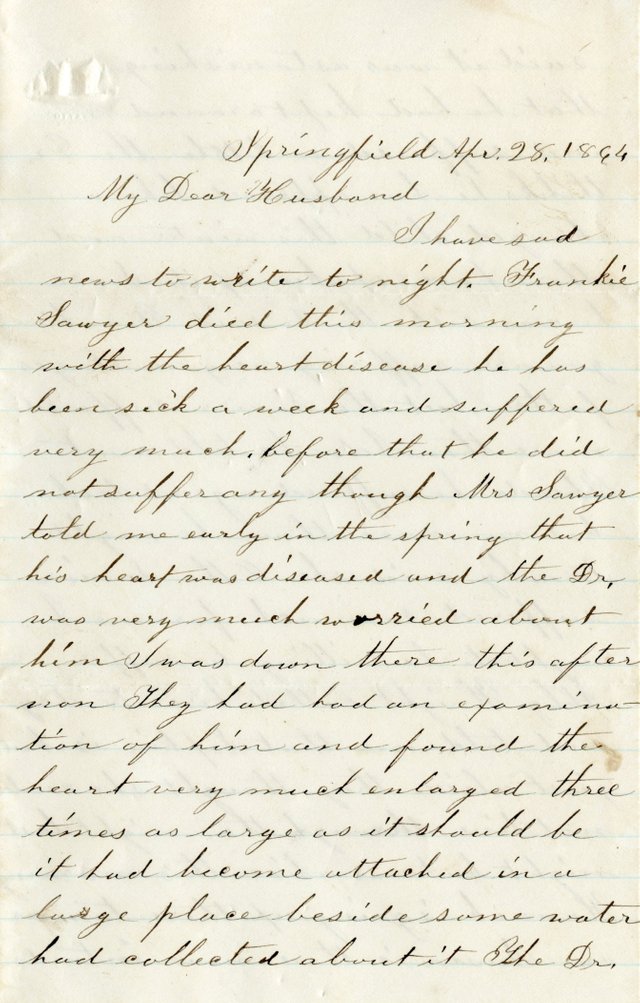 Springfield Apr. 28. 1864
My Dear Husband
I have sad
news to write to night. Frankie
Sawyer died this morning
with the heart disease he has
been sick a week and suffered
very much. before that he did
not suffer any though Mrs Sawyer
told me early in the spring that
his heart was diseased and the Dr.
was very much worried about
him I was down there this after
non They had had an examina-
tion of him and found the
heart very much enlarged three
times as large as it should be
it had become attached in a
large place beside some water
had collected about it The Dr.